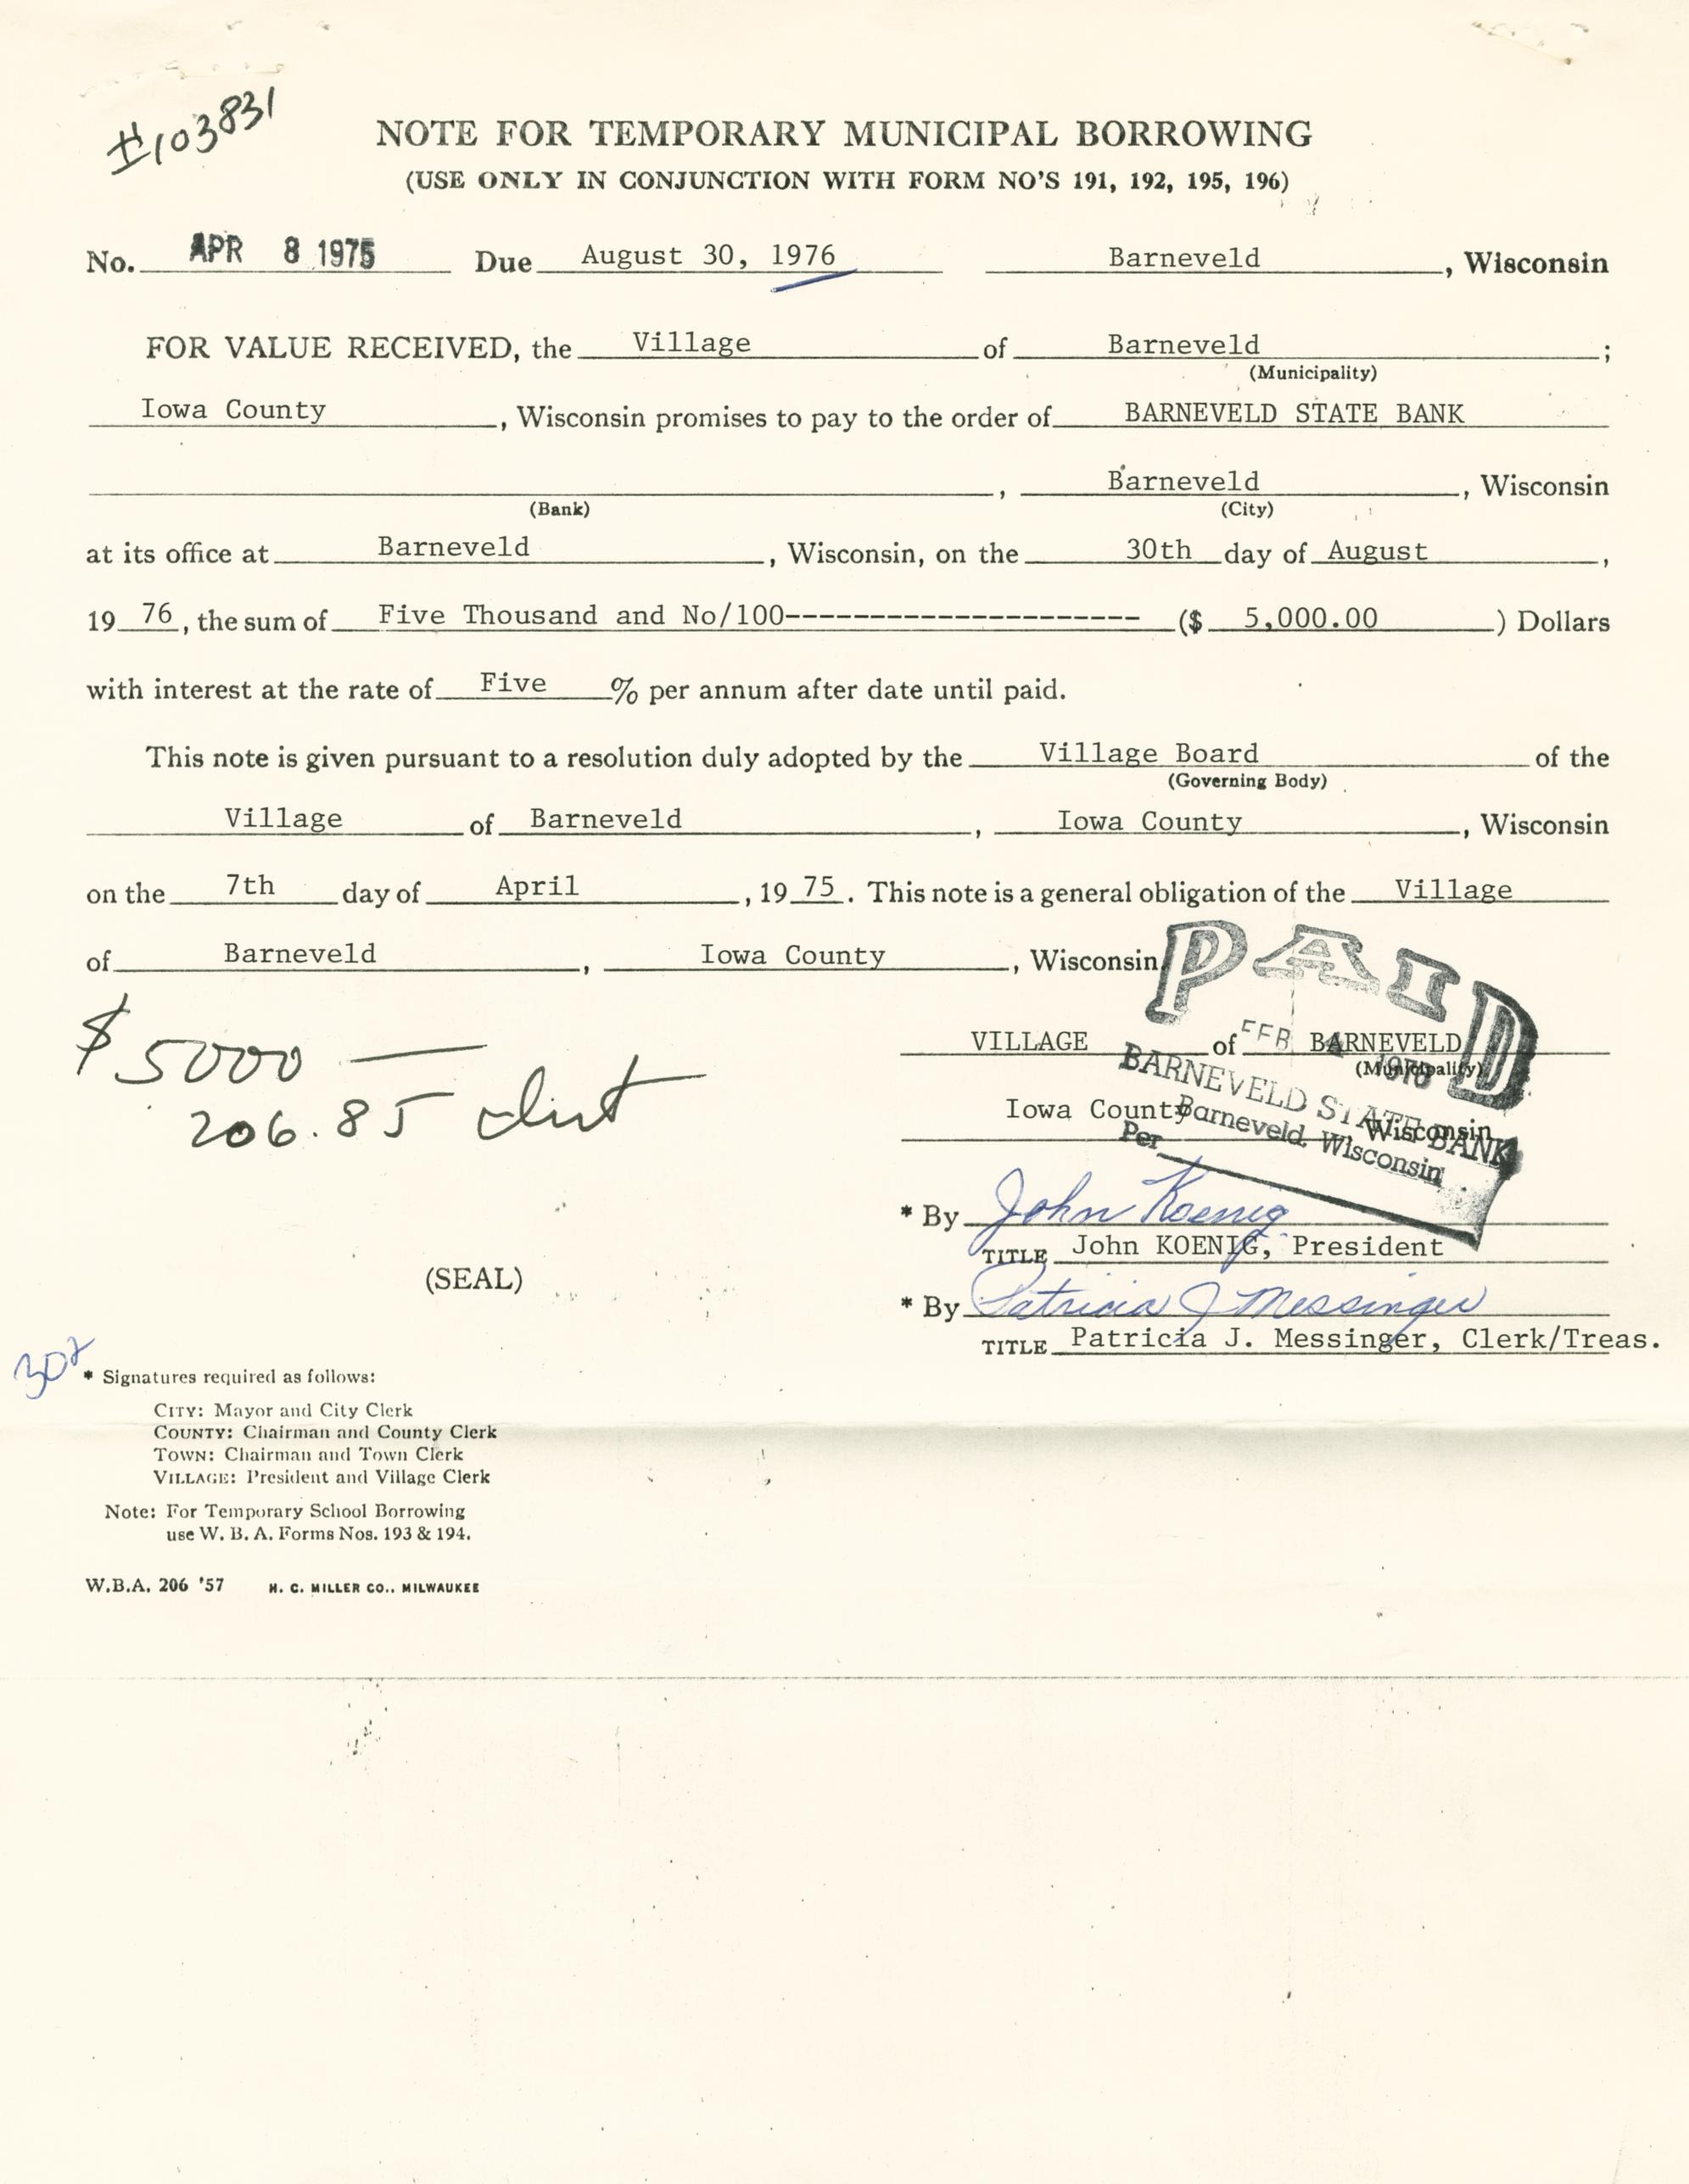 #103831
NOTE FOR TEMPORARY MUNICIPAL BORROWING
(USE ONLY IN CONJUNCTION WITH FORM NO'S 191, 192, 195, 196)
No. APR 8 1975 Due August 30, 1976 Barneveld, Wisconsin
FOR VALUE RECEIVED, the Village of Barneveld;
(Municipality)
Iowa County, Wisconsin promises to pay to the order of BARNEVELD STATE BANK
, Barneveld, Wisconsin
(Bank) (City)
at its office at Barneveld, Wisconsin, on the 30th day of August,
19 76, the sum of Five Thousand and No/100--------------------- ($ 5,000.00) Dollars
with interest at the rate of Five % per annum after date until paid.
This note is given pursuant to a resolution duly adopted by the Village Board of the
(Governing Body)
Village of Barneveld, Iowa County, Wisconsin
on the 7th day of April, 19 75. This note is a general obligation of the Village
of Barneveld, Iowa County, Wisconsin.
PAID
FEB 4
BARNEVELD STATE BANK
Barneveld, Wisconsin
Per
$5000 —
206.85 
VILLAGE of BARNEVELD
(Municipality)
Iowa County, Wisconsin
* By John Koenig
TITLE John KOENIG, President
(SEAL)
* By Patricia J Messinger
TITLE Patricia J. Messinger, Clerk/Treas.
* Signatures required as follows:
CITY: Mayor and City Clerk
COUNTY: Chairman and County Clerk
TOWN: Chairman and Town Clerk
VILLAGE: President and Village Clerk
Note: For Temporary School Borrowing
use W. B. A. Forms Nos. 193 & 194.
W.B.A. 206 '57 H. C. MILLER CO., MILWAUKEE